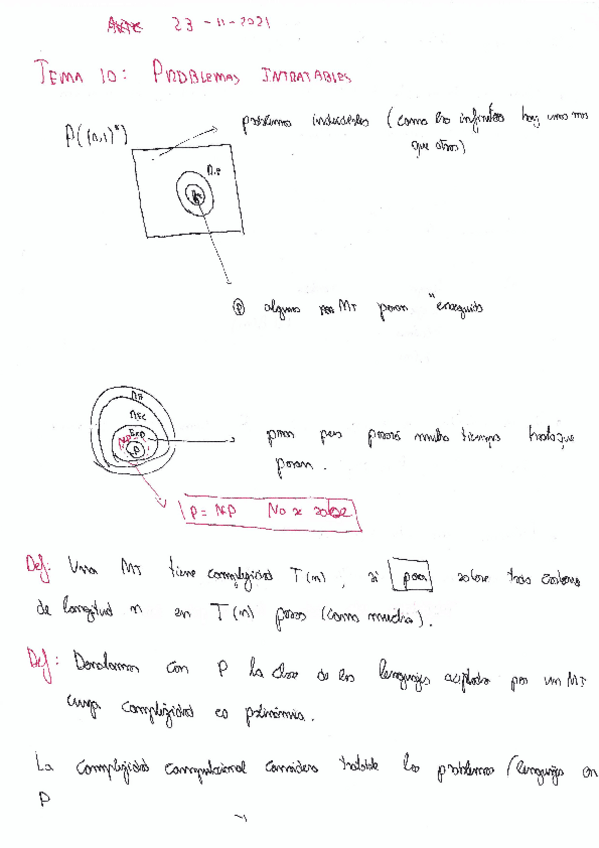 23-11-2021
TEMA 10: PROBLEMAS INTRATABLES
P((0,1)*)
problemas indecidibles (como los infinitos hay unos mas
que otros)
n.e
P
algunos MT paran "enseguida
n.e
REC
EXP
NP
P
paran pero pasará mucho tiempo hasta que
paran.
P = NP No se sabe
Def: Una MT tiene complejidad T(n), si para sobre todas cadenas
de longitud n en T(n) pasos (como mucho).
Def: Denotamos con P la clase de los lenguajes aceptados por un MT
cuya complejidad es polinómica.
La complejidad computacional considera tratable los problemas/lenguajes en
P